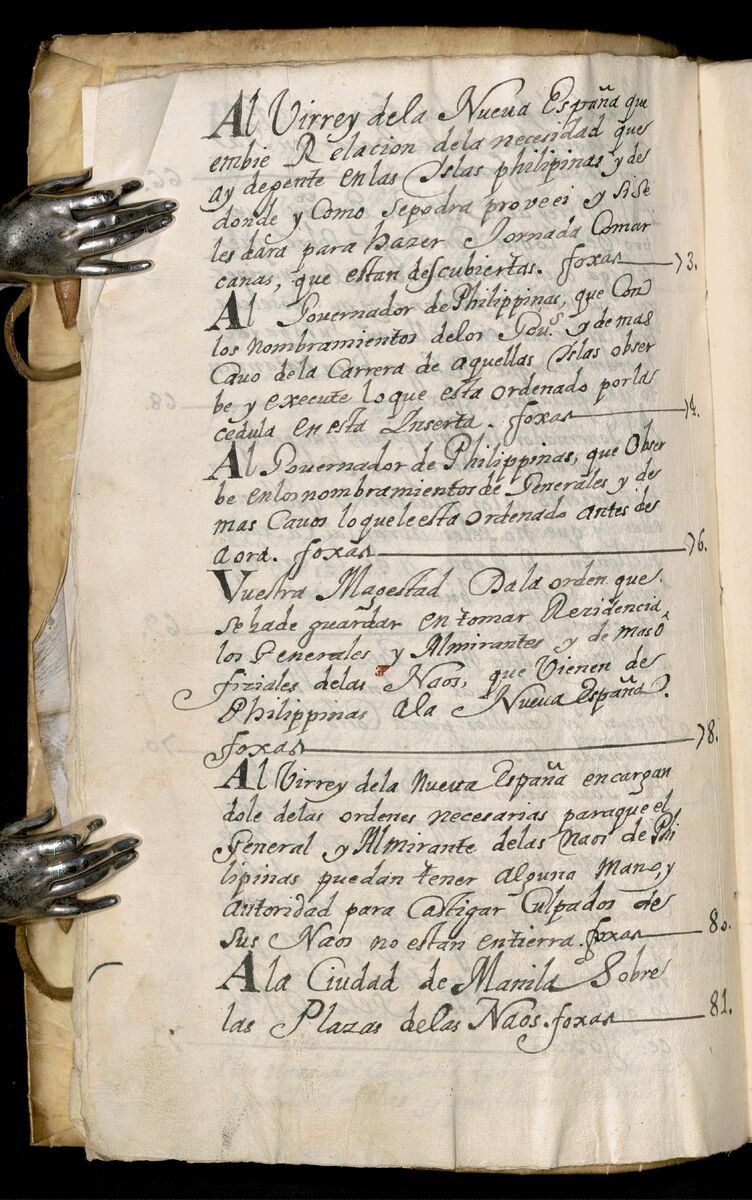 Al Virrey dela Nueva España que
embie Relacion dela necesidad que
ay degente enlas Islas philipinas y de
donde y Como sepodra proveei y sise
les dara para hazer Jornada Comar
canas, que estan descubiertas. foxas 73.
Al Governador de Philippinas, que Con
los nombramientos delos Gou.s y demas
Cavo dela Carrera de aquellas Islas obser
be y execute loque esta ordenado por las
cedula en esta Inserta. foxas 74.
Al Governador de Philippinas, que Obser
be enlos nombramientos de Generales y de
mas Cavos loqueleesta ordenado antes de
aora. foxas 76.
Vuestra Magestad Dala orden que
sehade guardar en tomar Rezidencia
los Generales y Almirantes y de mas ô
fiziales delas Naos, que Vienen de
Philippinas ala Nueva España.
foxas 78.
Al Virrey dela Nueva España encargan
dole delas ordenes necesarias paraque el
General y Almirante delas Naos de Phi
lipinas puedan tener alguna Mano, y
autoridad para Castigar Culpados de
sus Naos no estan entierra. foxas 80.
A la Ciudad de Manila Sobre
las Plazas delas Naos. foxas 81.